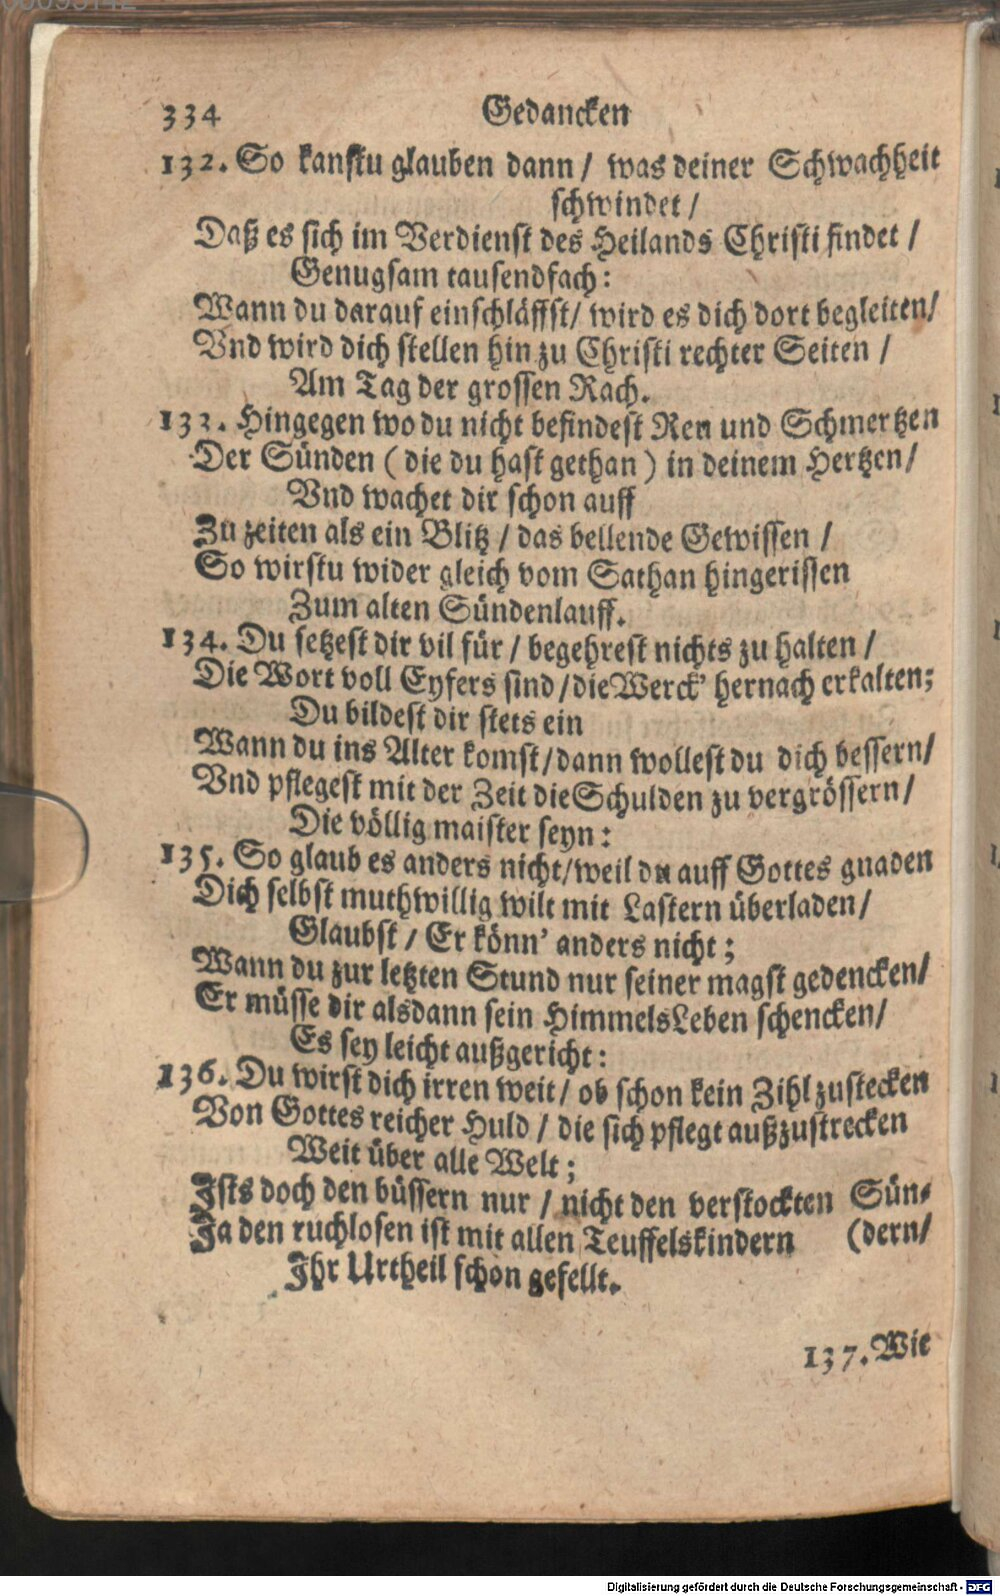 334 Gedancken
132. So kanstu glauben dann / was deiner Schwachheit
schwindet /
Daß es sich im Verdienst des Heilands Christi findet /
Genugsam tausendfach:
Wann du darauf einschläffst / wird es dich dort begleiten /
Vnd wird dich stellen hin zu Christi rechter Seiten /
Am Tag der grossen Rach.
133. Hingegen wo du nicht befindest Reu und Schmertzen
Der Sünden ( die du hast gethan ) in deinem Hertzen /
Vnd wachet dir schon auff
Zu zeiten als ein Blitz / das bellende Gewissen /
So wirstu wider gleich vom Sathan hingerissen
Zum alten Sündenlauff.
134. Du setzest dir vil für / begehrest nichts zu halten /
Die Wort voll Eyfers sind / die Werck' hernach erkalten;
Du bildest dir stets ein
Wann du ins Alter komst / dann wollest du dich bessern /
Vnd pflegest mit der Zeit die Schulden zu vergrössern /
Die völlig maister seyn:
135. So glaub es anders nicht / weil du auff Gottes gnaden
Dich selbst muthwillig wilt mit Lastern überladen /
Glaubst / Er könn' anders nicht;
Wann du zur letzten Stund nur seiner magst gedencken /
Er müsse dir alsdann sein HimmelsLeben schencken /
Es sey leicht außgericht:
136. Du wirst dich irren weit / ob schon kein Zihl zustecken
Von Gottes reicher Huld / die sich pflegt außzustrecken
Weit über alle Welt;
Ists doch den büssern nur / nicht den verstockten Sün-
Ja den ruchlosen ist mit allen Teuffelskindern (dern /
Ihr Urtheil schon gefellt.
137. Wie
Digitalisierung gefördert durch die Deutsche Forschungsgemeinschaft - DFG